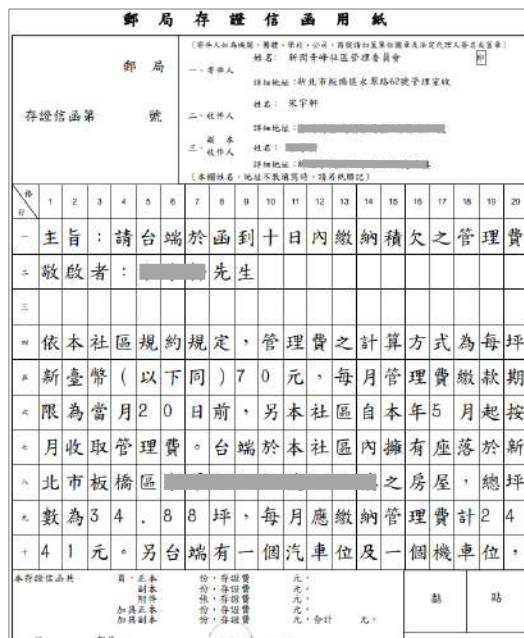 郵局存證信函用紙
(寄件人如為機關、團體、學校、公司、商號請加蓋單位圖章及法定代理人簽名或蓋章)
郵局
存證信函第 號
一、寄件人
姓名: 新潤青峰社區管理委員會
印
詳細地址:新北市板橋區永翠路62號管理室收
二、收件人
姓名: 宋宇軒
詳細地址:
三、副本收件人
姓名:
詳細地址:
(本欄姓名、地址不敷填寫時,請另紙聯記)
格 行 1 2 3 4 5 6 7 8 9 10 11 12 13 14 15 16 17 18 19 20
一 主旨:請台端於函到十日內繳納積欠之管理費
二 敬啟者: 先生
三
四 依本社區規約規定,管理費之計算方式為每坪
五 新臺幣(以下同)70元,每月管理費繳款期
六 限為當月20日前,另本社區自本年5月起按
七 月收取管理費。台端於本社區內擁有座落於新
八 北市板橋區 之房屋,總坪
九 數為34.88坪,每月應繳納管理費計24
十 41元。另台端有一個汽車位及一個機車位,
本存證信函共 頁,正本 份,存證費 元,
副本 份,存證費 元,
附件 張,存證費 元,
加具正本 份,存證費 元,
加具副本 份,存證費 元,合計 元。
黏 貼